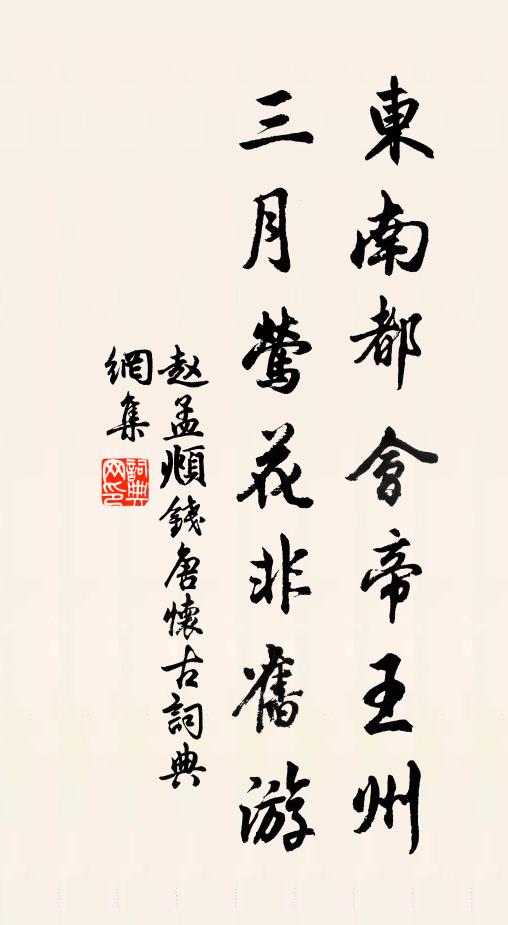 東南都會帝王州
三月鶯花非舊游
赵孟頫錢唐懷古詞典
網集
詞典
网印